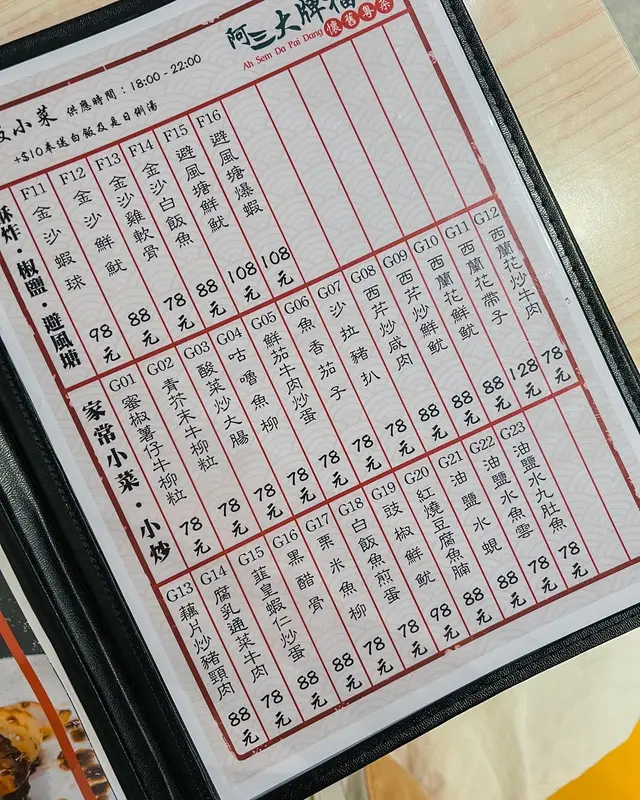 阿三大牌檔
懷舊粵菜
Ah Sem Da Pai Dang
小菜 供應時間：18:00 - 22:00
+$10奉送白飯及是日例湯
炸·椒鹽·避風塘
F11 金沙蝦球 98元
F12 金沙鮮魷 88元
F13 金沙雞軟骨 78元
F14 金沙白飯魚 88元
F15 避風塘鮮魷 108元
F16 避風塘爆蝦 108元
家常小菜·小炒
G01 蜜椒薯仔牛柳粒 78元
G02 青芥末牛柳粒 78元
G03 酸菜炒大腸 78元
G04 咕嚕魚柳 78元
G05 鮮茄牛肉炒蛋 78元
G06 魚香茄子 78元
G07 沙拉豬扒 78元
G08 西芹炒咸肉 88元
G09 西芹炒鮮魷 88元
G10 西蘭花鮮魷 88元
G11 西蘭花帶子 128元
G12 西蘭花炒牛肉 78元
G13 藕片炒豬頸肉 88元
G14 腐乳通菜牛肉 78元
G15 韮皇蝦仁炒蛋 88元
G16 黑醋骨 88元
G17 粟米魚柳 78元
G18 白飯魚煎蛋 78元
G19 豉椒鮮魷 98元
G20 紅燒豆腐魚腩 88元
G21 油鹽水蜆 88元
G22 油鹽水魚雲 78元
G23 油鹽水九肚魚 78元